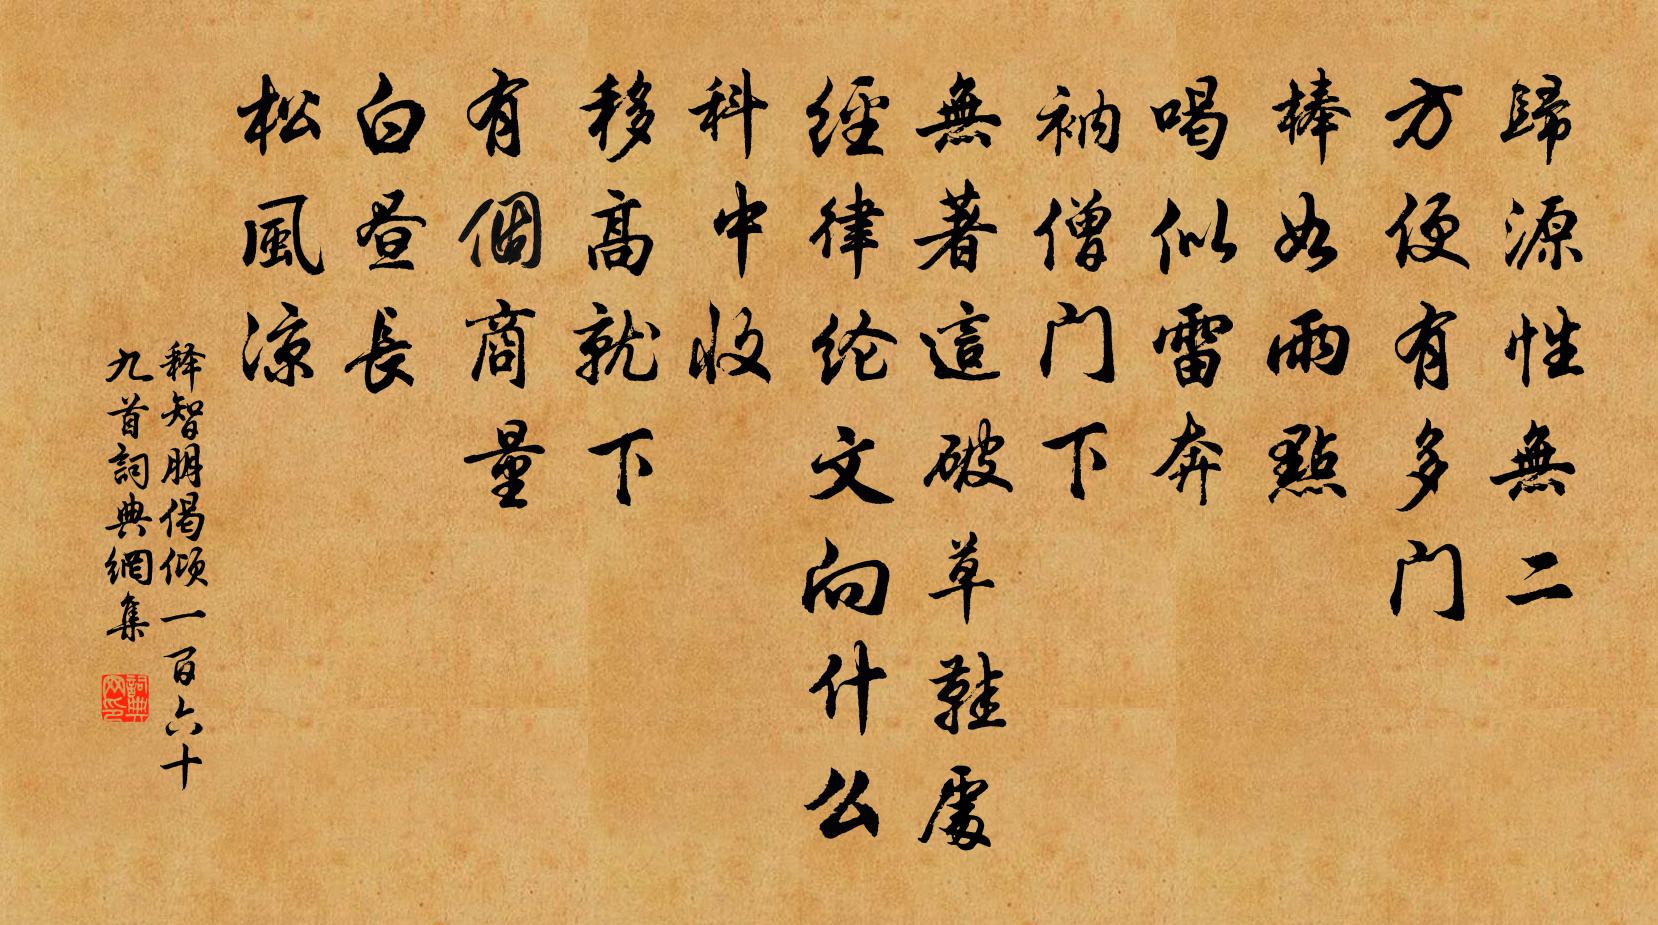 歸源性無二
方便有多门
棒如雨點
喝似雷奔
衲僧门下
無著這破草鞋處
經律纶文向什么
科中收
移高就下
有個商量
白昼長
松風凉
释智朋偈倾一百六十
九首詞典網集
詞典網印